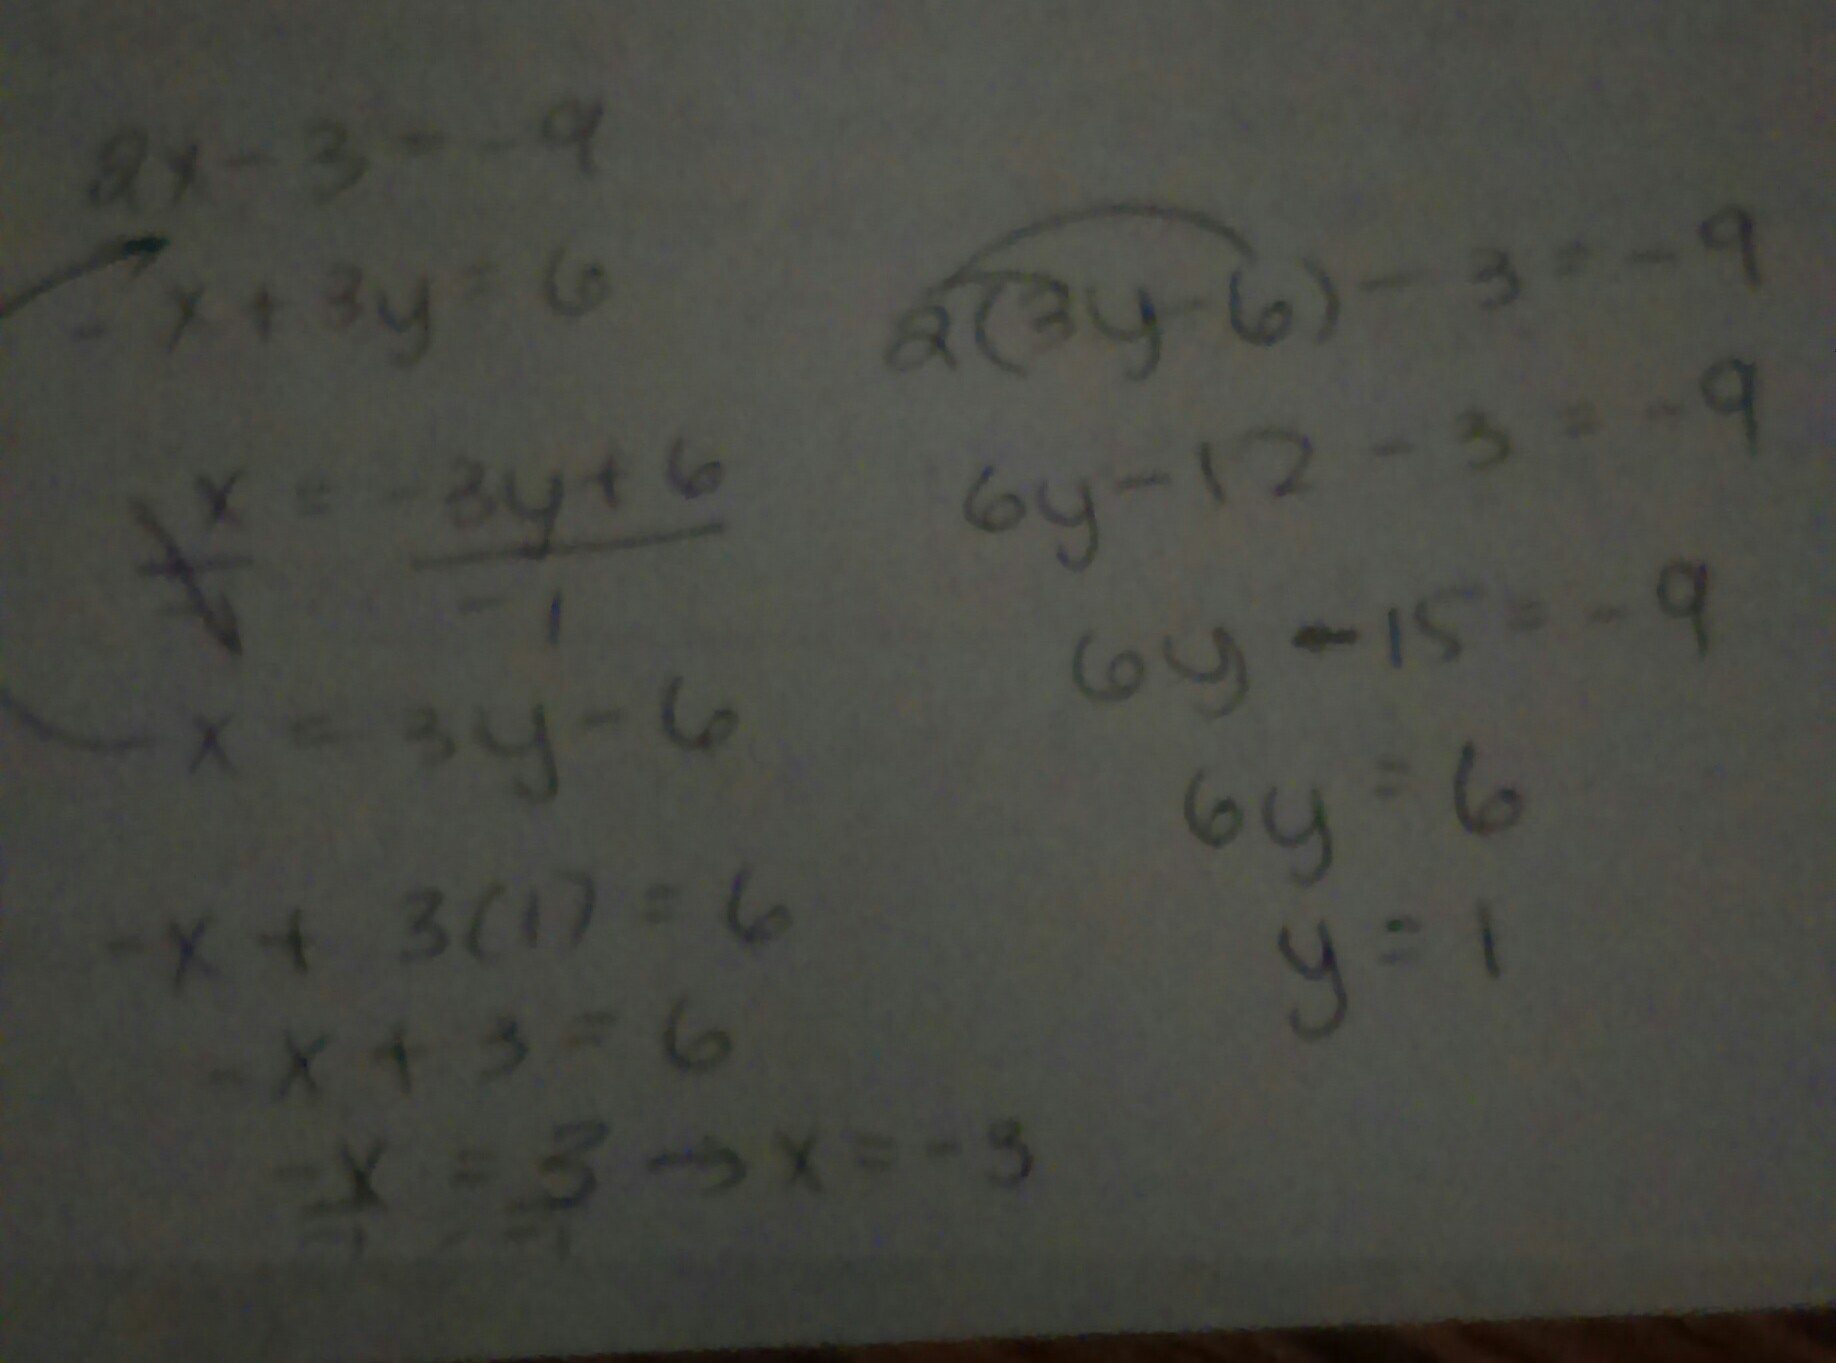 2x - 3 = -9
-x + 3y = 6
x = -3y + 6
-1
x = 3y - 6
-x + 3(1) = 6
-x + 3 = 6
-x = 3 → x = -3
-1 -1
2(3y - 6) - 3 = -9
6y - 12 - 3 = -9
6y - 15 = -9
6y = 6
y = 1